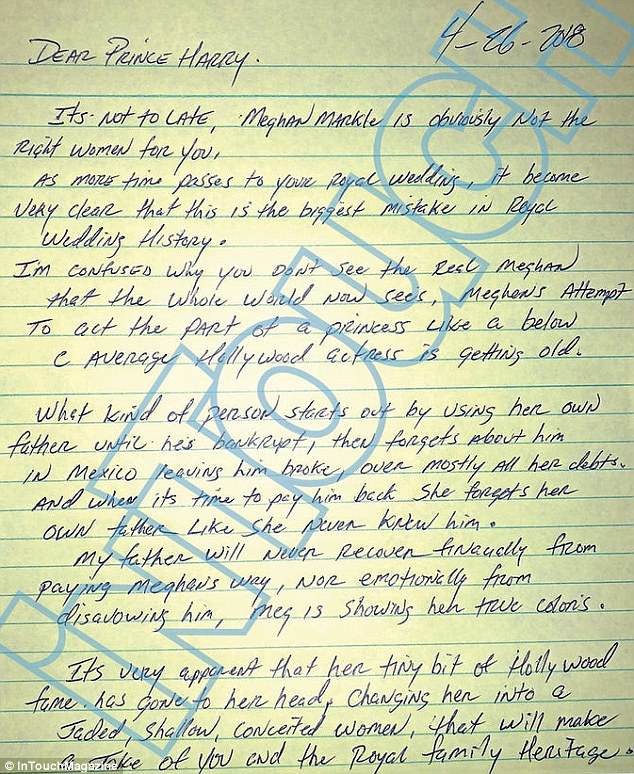 4-26-2018
DEAR PRINCE HARRY.
Its Not to LATE, Meghan MARKle is obviously Not the
Right women for you,
As more time passes to your Royal Wedding, it become
very clear that this is the biggest mistake in Royal
Wedding History.
I'm confused why you Don't see the Real Meghan
that the whole world Now sees, Meghan's Attempt
To act the PART of a princess Like a below
C Average Hollywood actress is getting old.
What kind of person starts out by using her own
father until he's bankrupt, then forgets About him
IN Mexico leaving him broke, over mostly all her debts.
And when its time to pay him back She forgets her
OWN father Like She Never Knew him.
My father will Never Recover finacially from
paying Meghans way, NoR emotionally from
disavowing him, Meg is Showing her true colors.
It's very apparent that her tiny bit of Hollywood
fame has gone to her head, Changing her into a
Jaded, Shallow, conceited women, that will make
a Joke of you and the Royal family Heritage.
INTOUCH
© InTouchMagazine